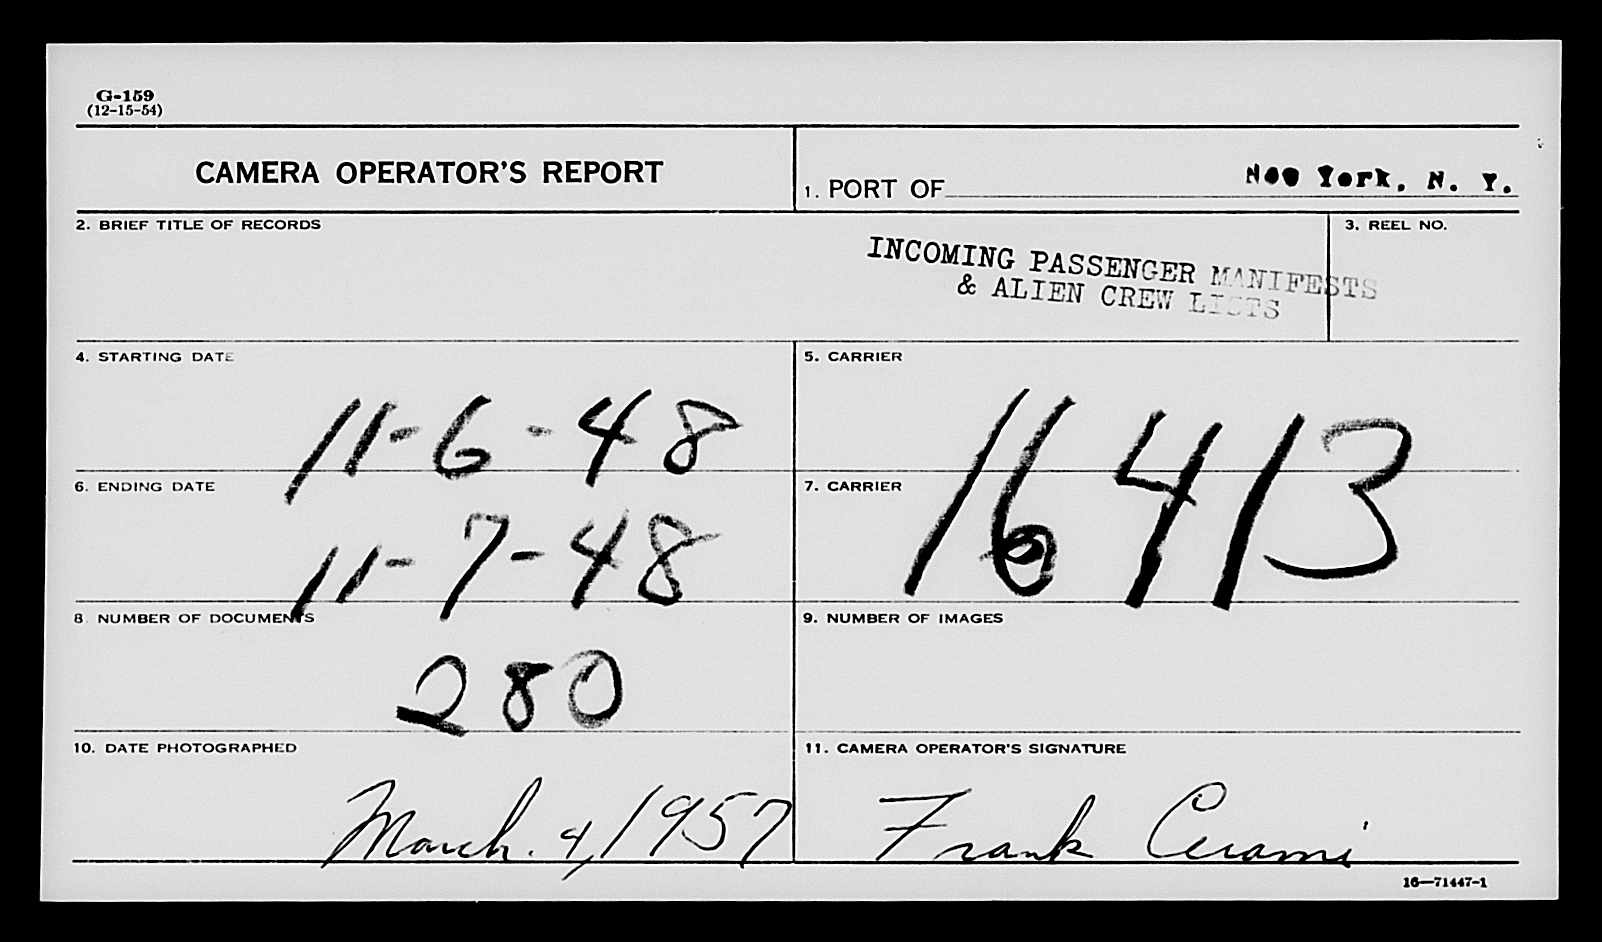 G-159
(12-15-54)
CAMERA OPERATOR'S REPORT
1. PORT OF New York, N. Y.
2. BRIEF TITLE OF RECORDS
3. REEL NO.
INCOMING PASSENGER MANIFESTS
& ALIEN CREW LISTS
4. STARTING DATE
5. CARRIER
11-6-48
16413
6. ENDING DATE
7. CARRIER
11-7-48
8. NUMBER OF DOCUMENTS
9. NUMBER OF IMAGES
280
10. DATE PHOTOGRAPHED
11. CAMERA OPERATOR'S SIGNATURE
March. 4, 1957
Frank Cerami
16—71447-1